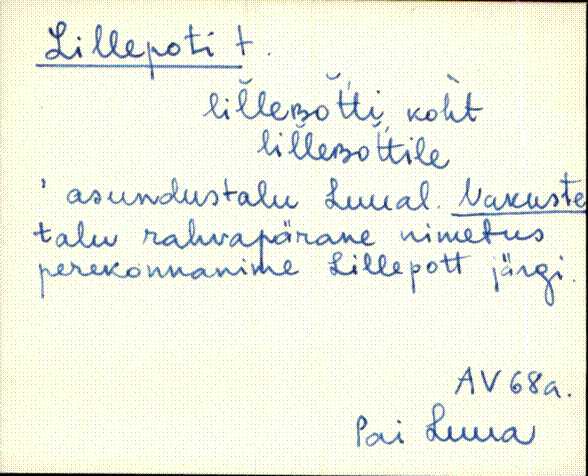 Lillepoti t.
lil̆leʙot̆ti, koh̀t
lil̆leʙot̆tile
' asundustalu Luual. Vakuste
talu rahvapärane nimetus
perekonnanime Lillepott järgi.
AV 68a.
Pai Luua